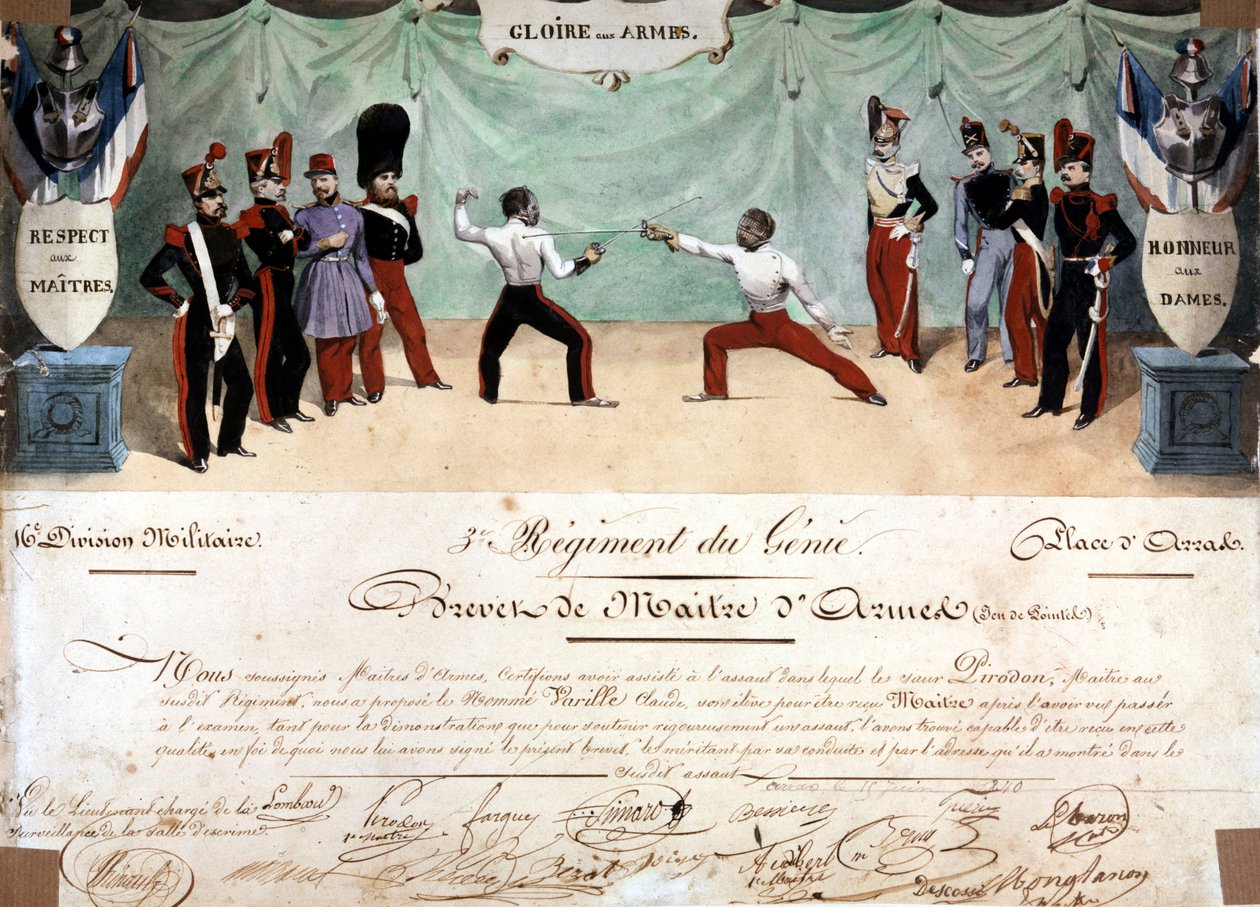 GLOIRE aux ARMES.
RESPECT
aux
MAÎTRES.
HONNEUR
aux
DAMES.
16e Division Militaire.
3e Régiment du Génie.
Place d'Arras.
Brevet de Maitre d'Armes (Jeu de Pointe)
Nous soussignés Maitres d'Armes, Certifions avoir assisté à l'assaut dans lequel le sieur Pirodon, Maitre au
susdit Régiment, nous a proposé le Nommé Varille Claude, son élève pour être reçu Maitre après l'avoir vu passer
à l'examen, tant pour la démonstration que pour soutenir rigoureusement un assaut, l'avons trouvé capable d'être reçu en cette
qualité, en foi de quoi nous lui avons signé le présent brevet, le méritant par sa conduite et par l'adresse qu'il a montré dans le
susdit assaut
arras le 15 Juin 1840
Vu le Lieutenant chargé de la
surveillance de la salle d'escrime.
Pirodon
1er Maitre
fargues
Simard
Bezat
Audibert
1er Maitre